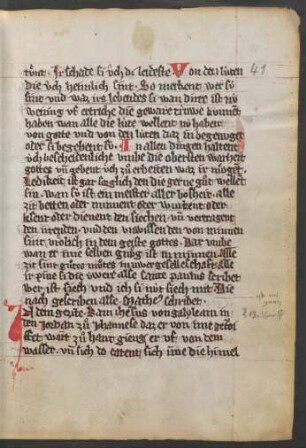 41
tůnt. Ir schade si vch die leideste Von den lúten
die vch heimlich sint. So merkent wer sú
sint vnd waz irs lebendes si wan dirre ist nv
wening vf ertriche die geware trúwe kunnent
haben wan alle die lúte wellent nv haben
von gotte vnd von den lúten daz in begenuget
oder si begebent sú. In allen dingen haltent
vch bescheidenliche vmbe die obersten warheit
gottes vñ gebent vch zů erbeiten waz ir múget.
Ledikeit ist gar sorglich den die gerne gůt wellet
sin. wan sú ist ein meister aller bosheit. alle
zit bettent oder minnent oder wurkent oder
lesent oder dienent den siechen vñ vertragent
den irrenden. vnd den vnwissen den von minnen
sint. vrôlich in dem geiste gottes. Dar vmbe
wan er ime selben gnůg ist in minnen. alle
zit sint gůtes můtes in uwer geselleschaft. alle
ir pine si die uwere alse sante paulus scribet
wer ist siech vnd ich si nút siech mit Die
nach gescriben alse Matheus schribet.
In dem gezite. Kam ihesus von galylea in
den Jordan zů Johannese daz er von ime getôf
fet wurde vñ zu hant gieng er vf von dem
wasser. vñ sich do tatent sich ime die himel